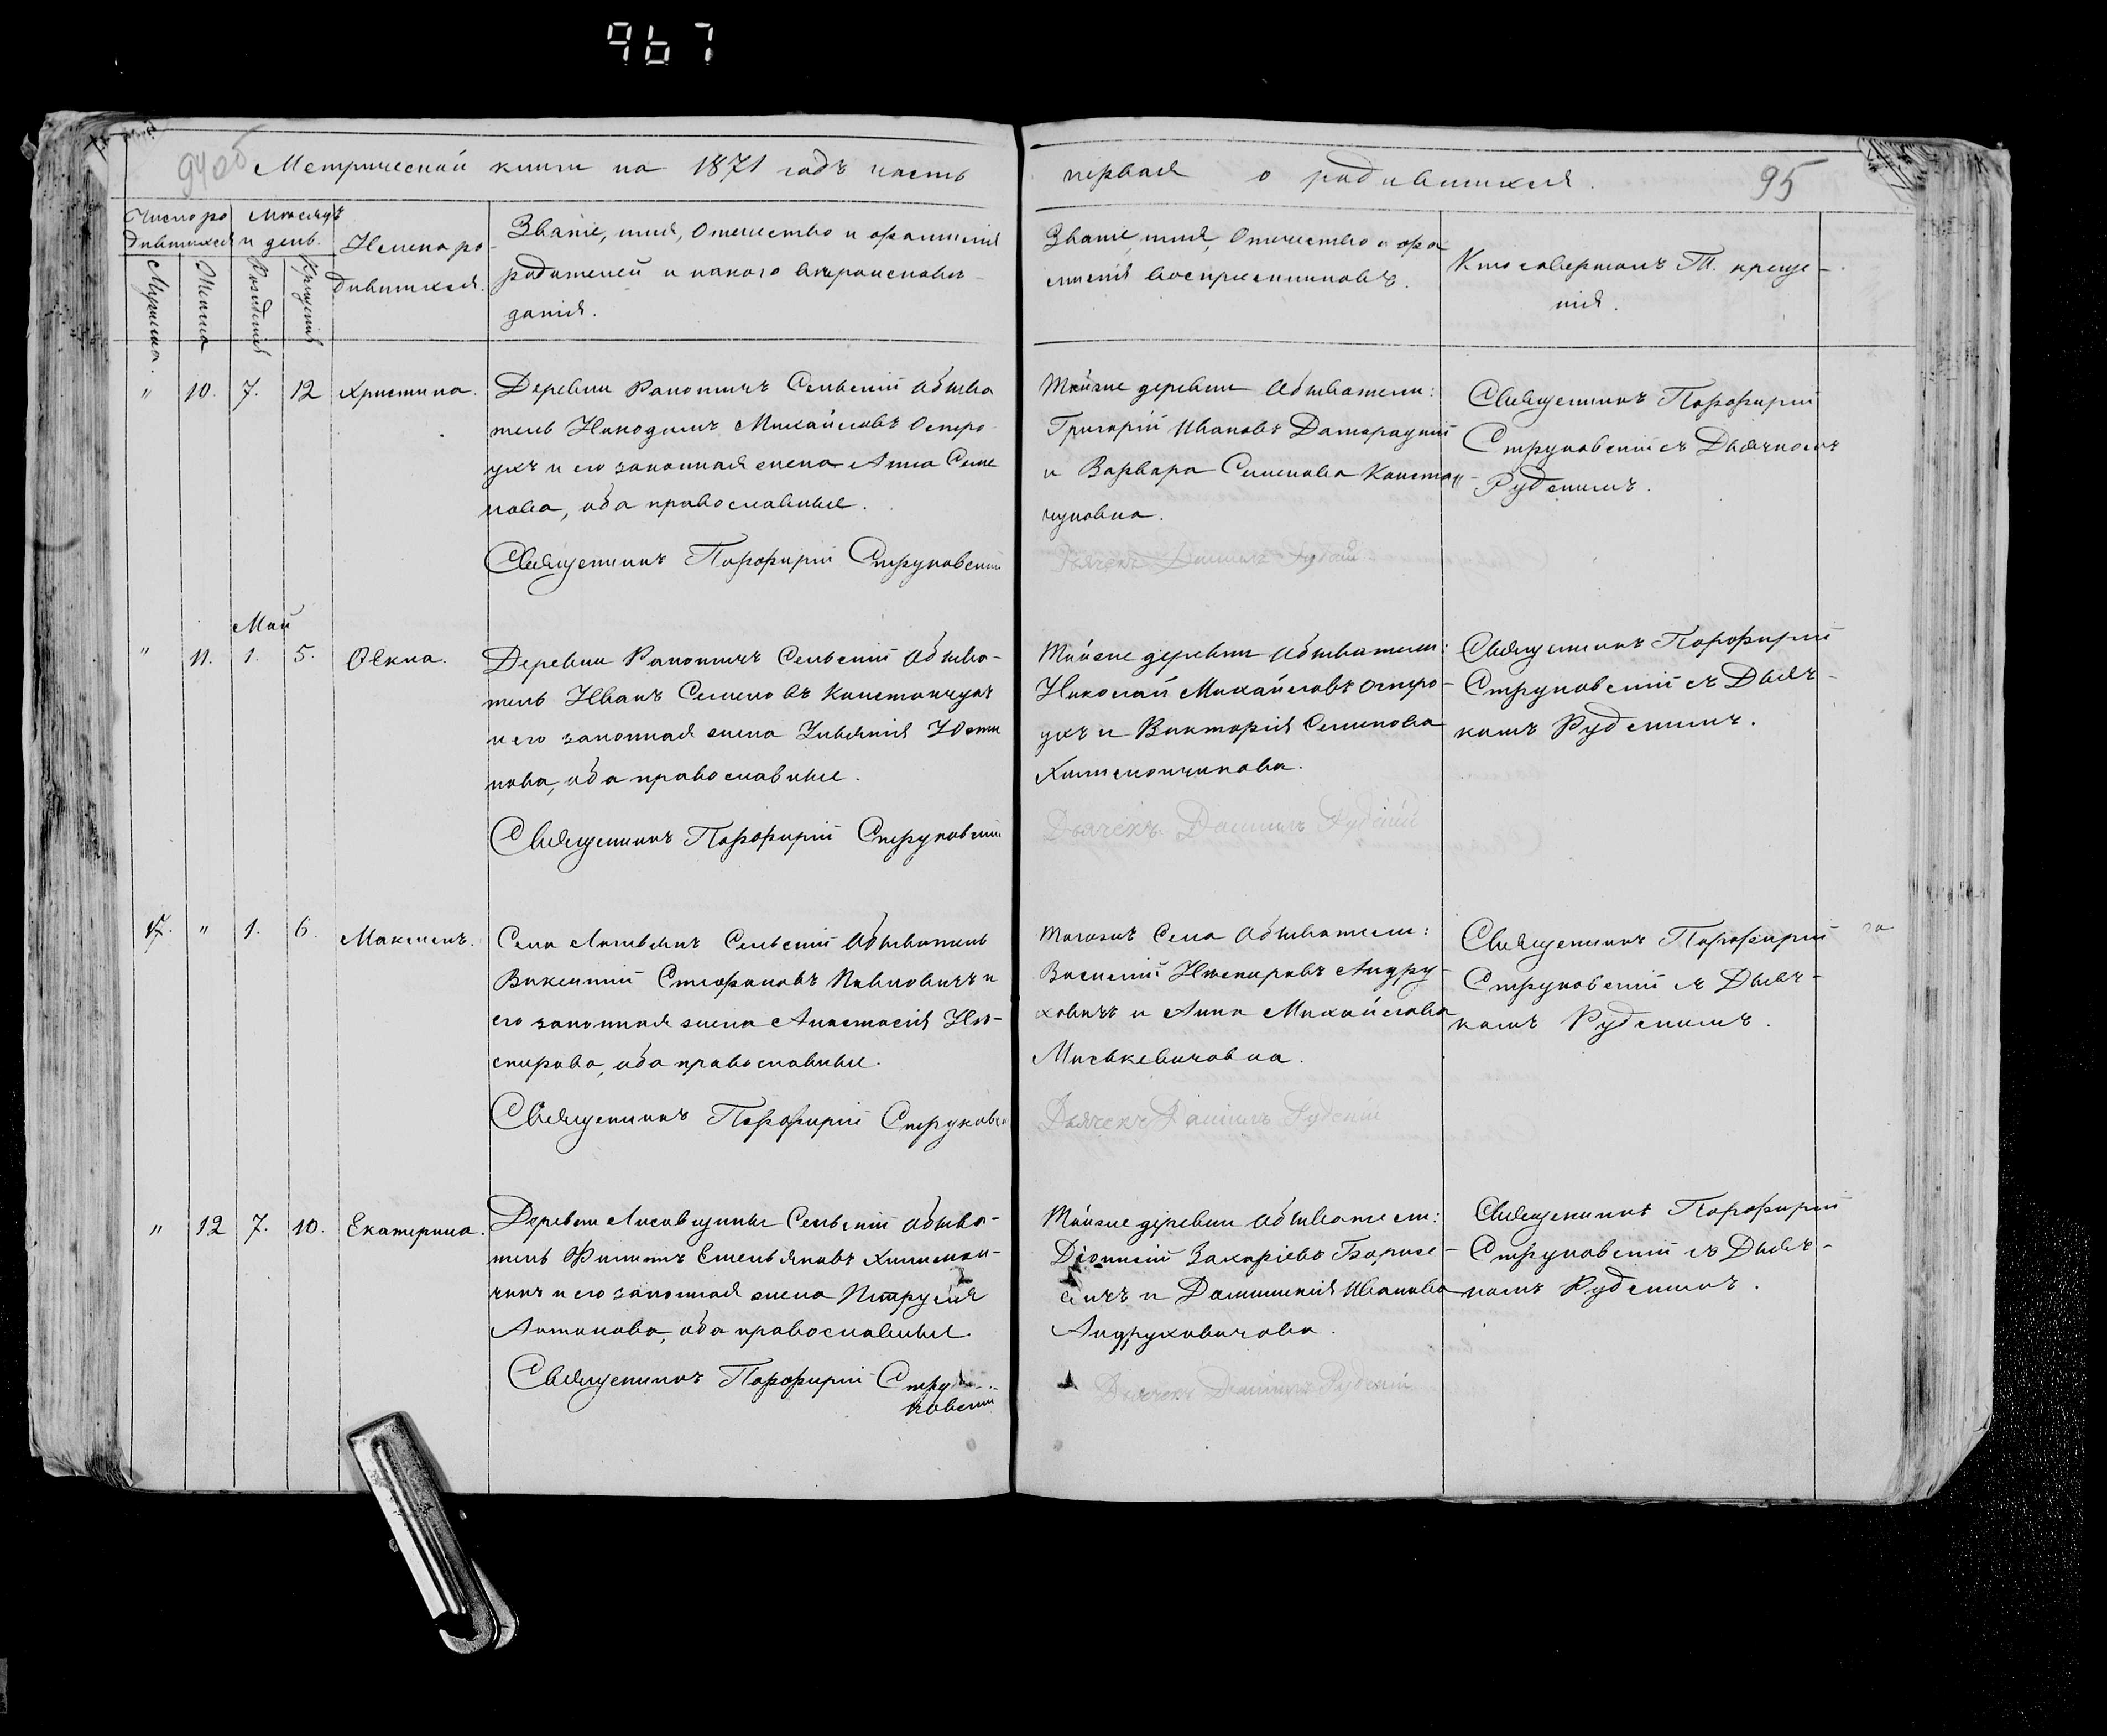 967
94об
Метрической книги на 1871 годъ часть
первая о родившихся.
95
Число ро
дившихся
Мѣсяцъ
и день.
Мужеска.
Женска
Рожденія
Крещенія
Имена ро-
дившихся.
Званіе, имя, Отечество и фамилія
родителей и какого вѣроисповѣ-
данія.
Званіе, имя, Отечество и фа
милія воспріемниковъ.
Кто совершалъ Т. креще-
нія.
" 10. 7. 12 Христина.
Деревни Рапотичъ Сельскій Обыва
тель Никодимъ Михайловъ Остро
ухъ и его законная жена Анна Семе
нова, оба православные.
Священникъ Порфирій Струковскій
Тойже деревни Обыватели:
Григорій Ивановъ
и Варвара Семенова Констан
чуковна.
Дьячекъ Даніилъ Рудскій
Священникъ Порфирій
Струковскій съ Дьячкомъ
Рудскимъ.
Май
" 11. 1. 5. Ѳекла.
Деревни Рапотичъ Сельскій Обыва-
тель Иванъ Семеновъ Констанчукъ
и его законная жена Юсти
нова, оба православные.
Священникъ Порфирій Струковскій
Тойже деревни Обыватели:
Николай Михайловъ Остро-
ухъ и Викторія Семенова
Дьячекъ Даніилъ Рудскій
Священникъ Порфирій
Струковскій съ Дьяч-
комъ Рудскимъ.
17. " 1. 6. Максимъ.
Села Сельскій Обыватель
Викентій Стефановъ и
его законная жена Анастасія Нѣ-
спирова, оба православные.
Священникъ Порфирій Струковск
Тогожъ Села Обыватели:
Василій Андру-
ховичъ и Анна Михайлова
Миськевичовна.
Дьячекъ Даніилъ Рудскій
Священникъ Порфирій
Струковскій съ Дьяч-
комъ Рудскимъ.
" 12 7. 10. Екатерина.
Деревни Лисовщины Сельскій Обыва-
тель Филипъ Емельяновъ Химион-
чикъ и его законная жена Петруся
Антонова, оба православные.
Священникъ Порфирій Стру
ковскій
Тойже деревни Обыватели:
Діонисій Захаріевъ Борисе-
вичъ и Доминикія Иванова
Андруховичова.
Дьячекъ Даніилъ Рудскій
Священникъ Порфирій
Струковскій съ Дьяч-
комъ Рудскимъ.